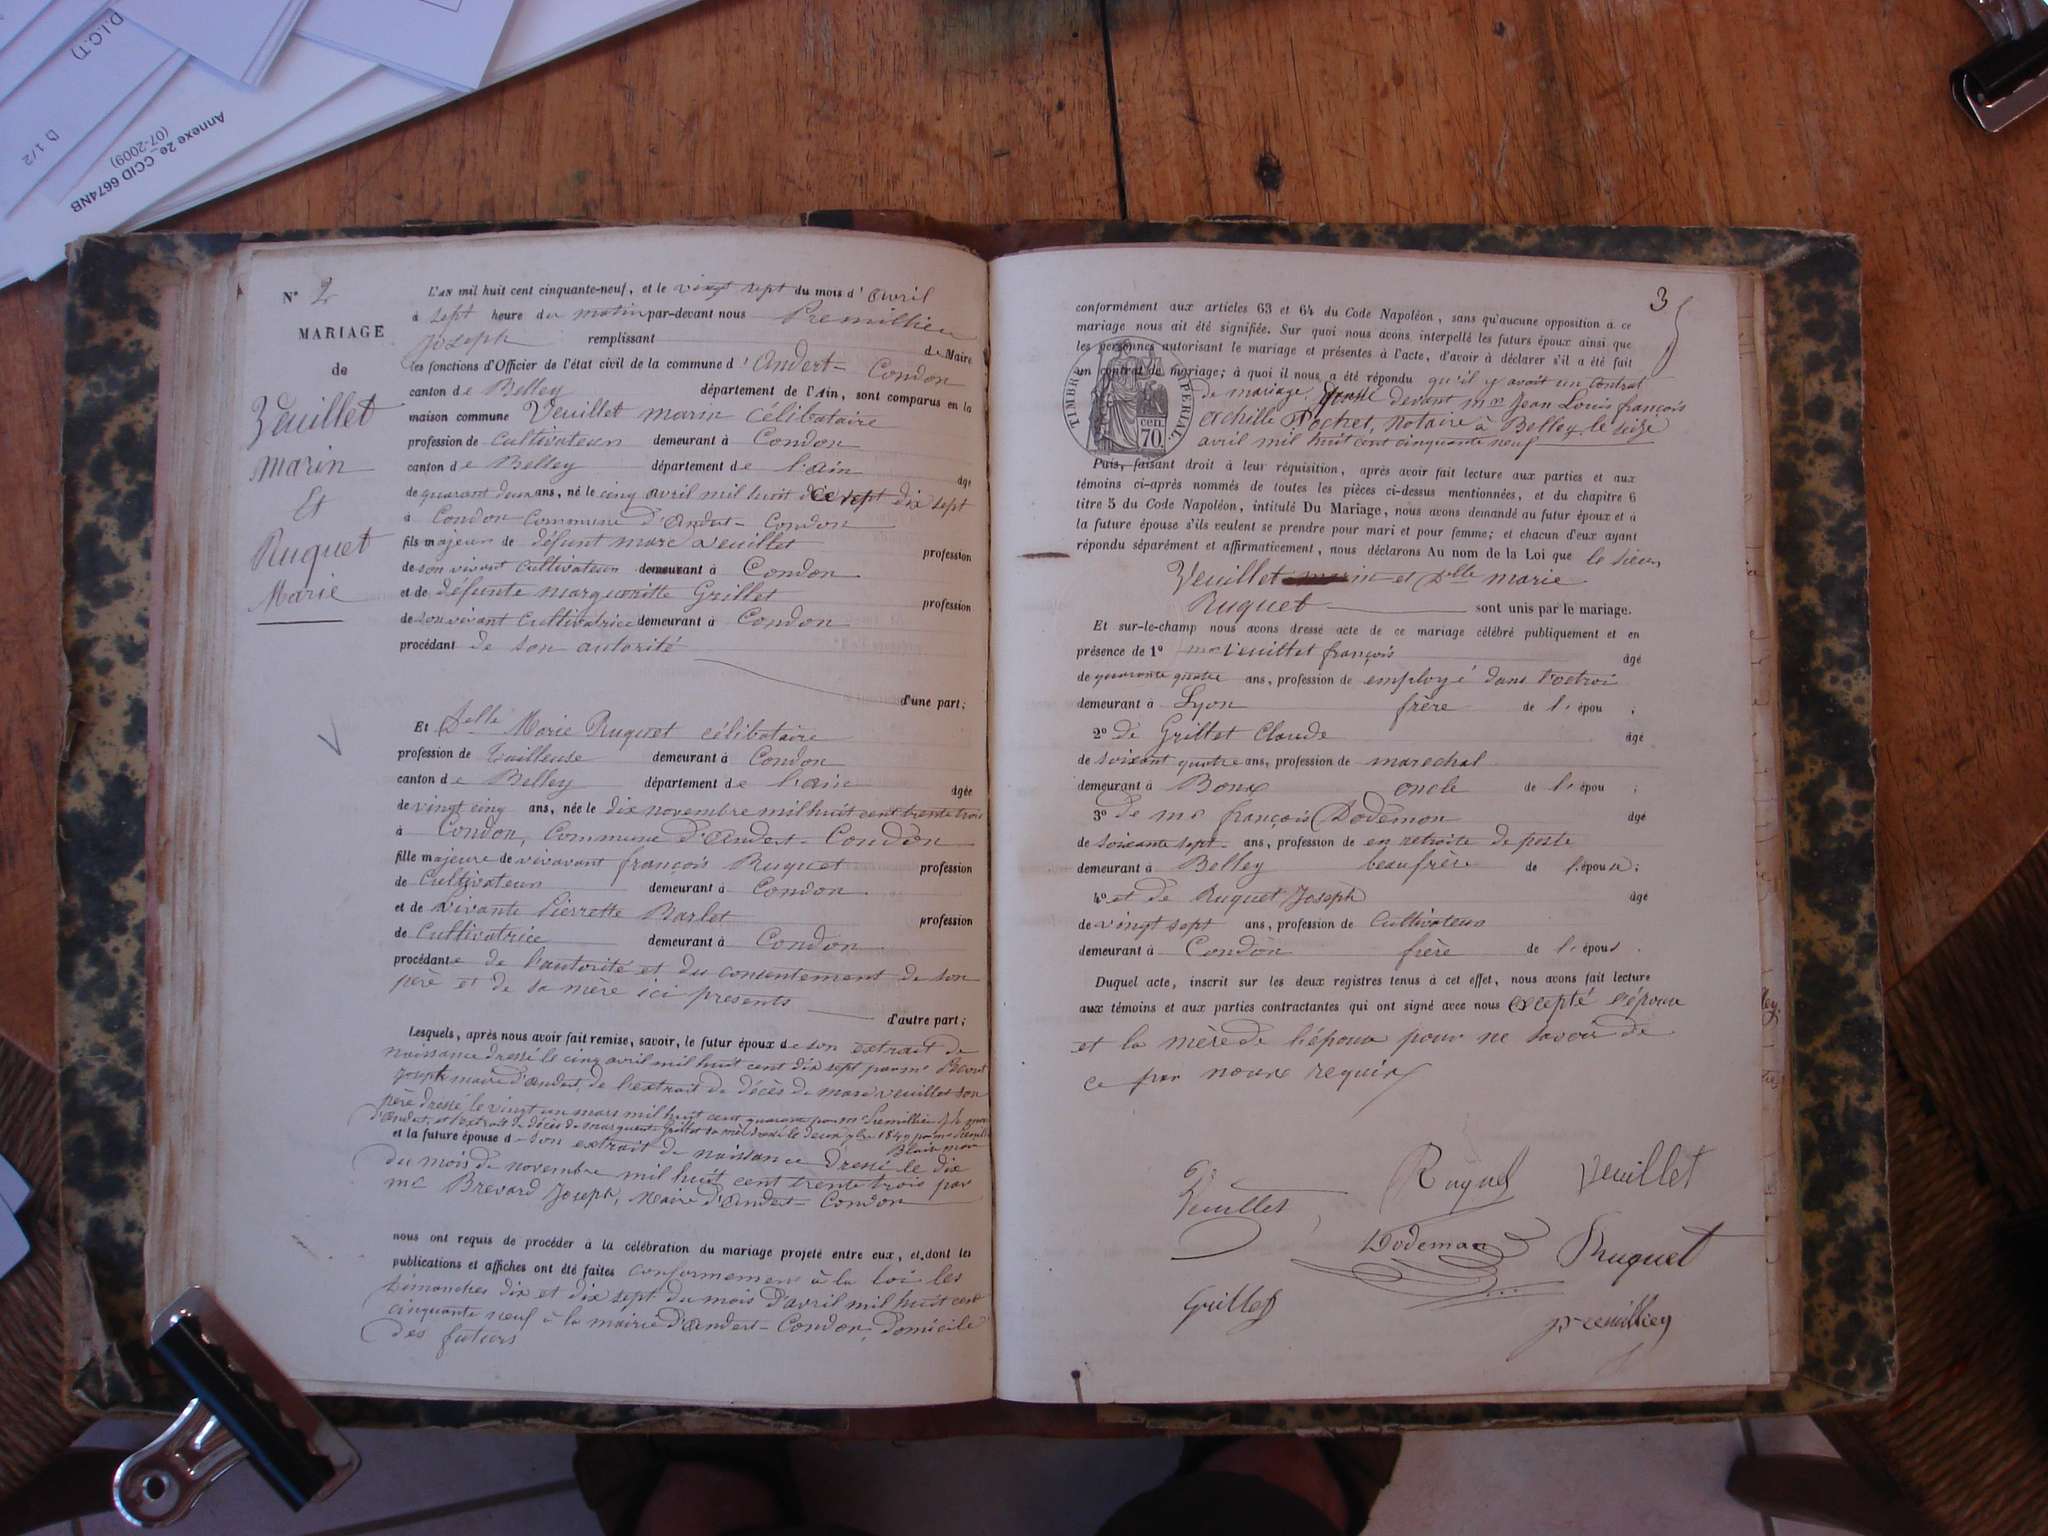 D.I.C.T)
D 1/2
Annexe 2e CCID 6674NB
(07-2009)
N° 2
MARIAGE
de
Veuillet
marin
Et
Ruquet
Marie
L'AN mil huit cent cinquante-neuf, et le vingt sept du mois d'avril
à sept heure du matin par-devant nous Premillieu
Joseph remplissant de Maire
les fonctions d'Officier de l'état civil de la commune d'Andert-Condon
canton de Belley département de l'Ain, sont comparus en la
maison commune Veuillet marin Célibataire
profession de Cultivateur demeurant à Condon
canton de Belley département de l'ain âgé
de quarant deux ans, né le cinq avril mil huit dix sept
à Condon Commune d'Andert-Condon
fils majeur de défunt marc veuillet profession
de son vivant Cultivateur demeurant à Condon
et de défunte margueritte Grillet profession
de son vivant Cultivatrice demeurant à Condon
procédant de son autorité
d'une part;
Et Delle Marie Ruquet célibataire
profession de Tailleuse demeurant à Condon
canton de Belley département de l'ain âgée
de vingt cinq ans, née le dix novembre mil huit cent trente trois
à Condon, Commune d'Andert-Condon
fille majeure de vivavant françois Ruquet profession
de Cultivateur demeurant à Condon
et de vivante Pierrette Barlet profession
de Cultivatrice demeurant à Condon
procédante de l'autorité et du consentement de son
père et de sa mère ici presents
d'autre part;
Lesquels, après nous avoir fait remise, savoir, le futur époux de son extrait de
naissance dressé le cinq avril mil huit cent dix sept par mr
Joseph maire d'Andert, de l'extrait de décès de marc veuillet son
père dressé le vingt un mars mil huit cent quarante par mr Premillieu
d'Andert, et l'extrait de décès de marguerite Grillet sa mère dressé le deux
et la future épouse d son extrait de naissance Dressé le dix
du mois de novembre mil huit cent trente trois par
mr Brevard Joseph, Maire d'Andert-Condon
nous ont requis de procéder à la célébration du mariage projeté entre eux, et dont les
publications et affiches ont été faites conformement à la loi les
Dimanches dix et dix sept du mois d'avril mil huit cent
cinquante neuf à la mairie d'Andert-Condon, Domicile
des futurs
3
conformément aux articles 63 et 64 du Code Napoléon, sans qu'aucune opposition à ce
mariage nous ait été signifiée. Sur quoi nous avons interpellé les futurs époux ainsi que
les personnes autorisant le mariage et présentes à l'acte, d'avoir à déclarer s'il a été fait
un contrat de mariage; à quoi il nous a été répondu qu'il y avait un Contrat
de mariage, passé devant mre Jean Louis françois
achille Pochet, Notaire à Belley le seize
avril mil huit cent cinquante neuf
TIMBRE IMPÉRIAL
70 cen.
Puis, faisant droit à leur réquisition, après avoir fait lecture aux parties et aux
témoins ci-après nommés de toutes les pièces ci-dessus mentionnées, et du chapitre 6
titre 5 du Code Napoléon, intitulé Du Mariage, nous avons demandé au futur époux et à
la future épouse s'ils veulent se prendre pour mari et pour femme; et chacun d'eux ayant
répondu séparément et affirmativement, nous déclarons Au nom de la Loi que le sieur
Veuillet marin et Delle marie
Ruquet sont unis par le mariage.
Et sur-le-champ nous avons dressé acte de ce mariage célébré publiquement et en
présence de 1° mr Veuillet françois âgé
de quarante quatre ans, profession de employé dans l'octroi
demeurant à Lyon frère de l'épou
2° de Grillet Claude âgé
de soixant quatre ans, profession de marechal
demeurant à Bons oncle de l'épou ;
3° de mr françois Dodeman âgé
de soixante sept ans, profession de en retraite de poste
demeurant à Belley beaufrère de l'époux;
4° et de Ruquet Joseph âgé
de vingt sept ans, profession de Cultivateur
demeurant à Condon frère de l'épous.
Duquel acte, inscrit sur les deux registres tenus à cet effet, nous avons fait lecture
aux témoins et aux parties contractantes qui ont signé avec nous excepté l'épouse
et la mère de l'épouse pour ne savoir de
ce par nous requis
Veuillet Ruquet Veuillet
Dodeman Ruquet
Grillet premillieu